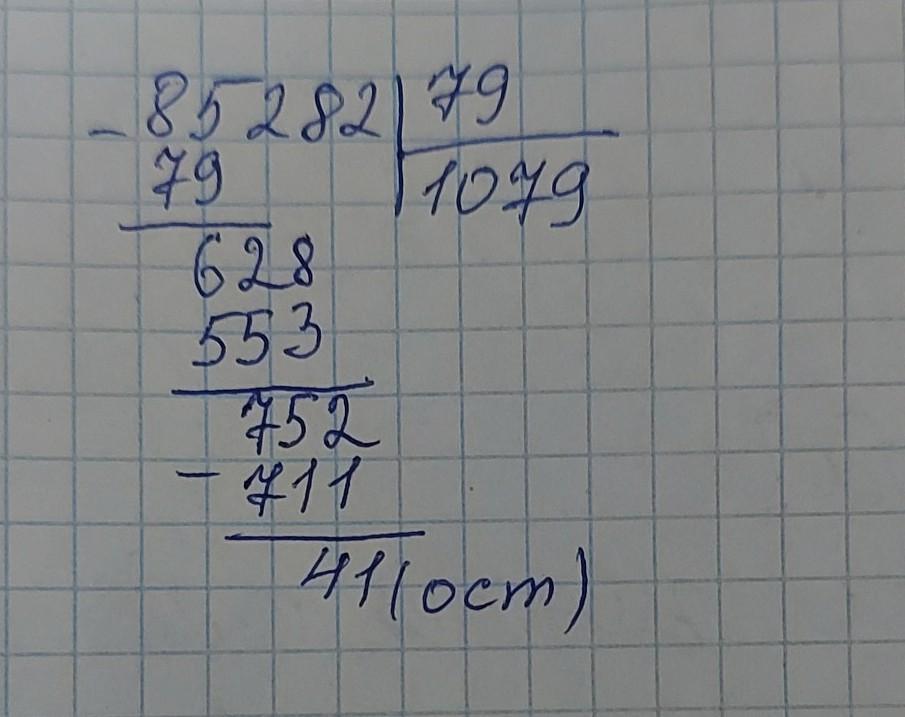 - 85282 | 79
79 1079
628
553
752
- 711
41 (ост)